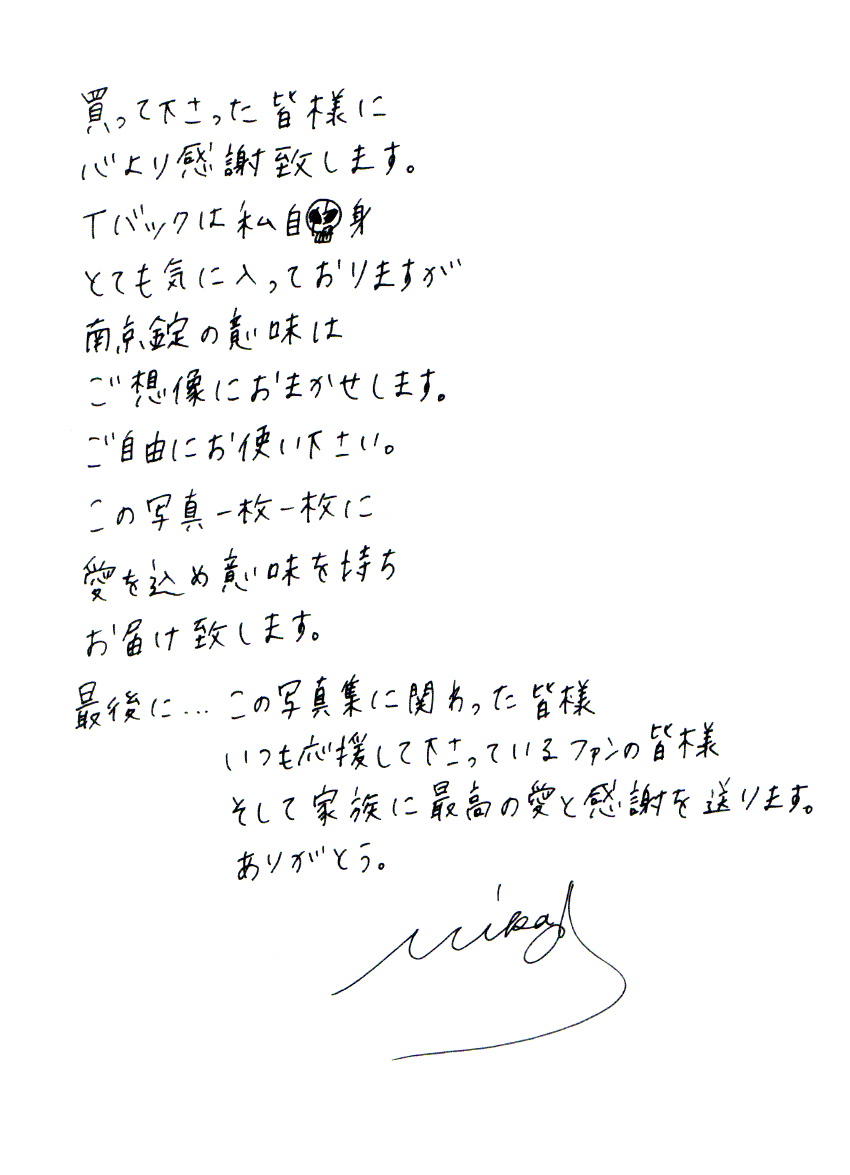 買って下さった皆様に
心より感謝致します。
Tバックは私自身
とても気に入っておりますが
南京錠の意味は
ご想像におまかせします。
ご自由にお使い下さい。
この写真一枚一枚に
愛を込め意味を持ち
お届け致します。
最後に… この写真集に関わった皆様
いつも応援して下さっているファンの皆様
そして家族に最高の愛と感謝を送ります。
ありがとう。